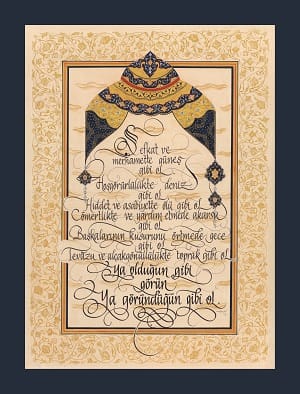 Şefkat ve
merhamette güneş
gibi ol
Hoşgörürlülükte deniz
gibi ol
Hiddet ve asabiyette ölü gibi ol
Cömertlikte ve yardım etmede akarsu
gibi ol
Başkalarının kusurunu örtmede gece
gibi ol
Tevazu ve alçakgönüllülükte toprak gibi ol
Ya olduğun gibi
görün
Ya göründüğün gibi ol